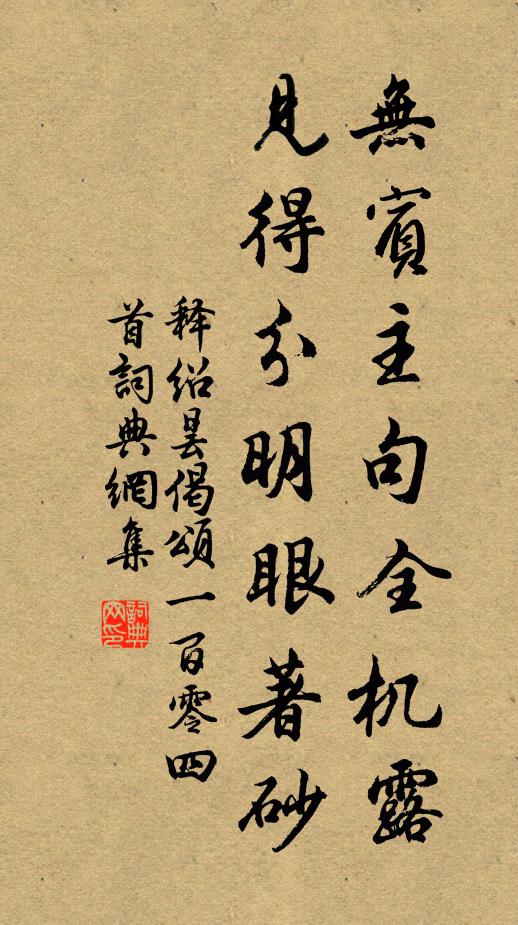 無賓主句全机露
見得分明眼著砂
释绍昙偈頌一百零四
首詞典網集
詞典网印